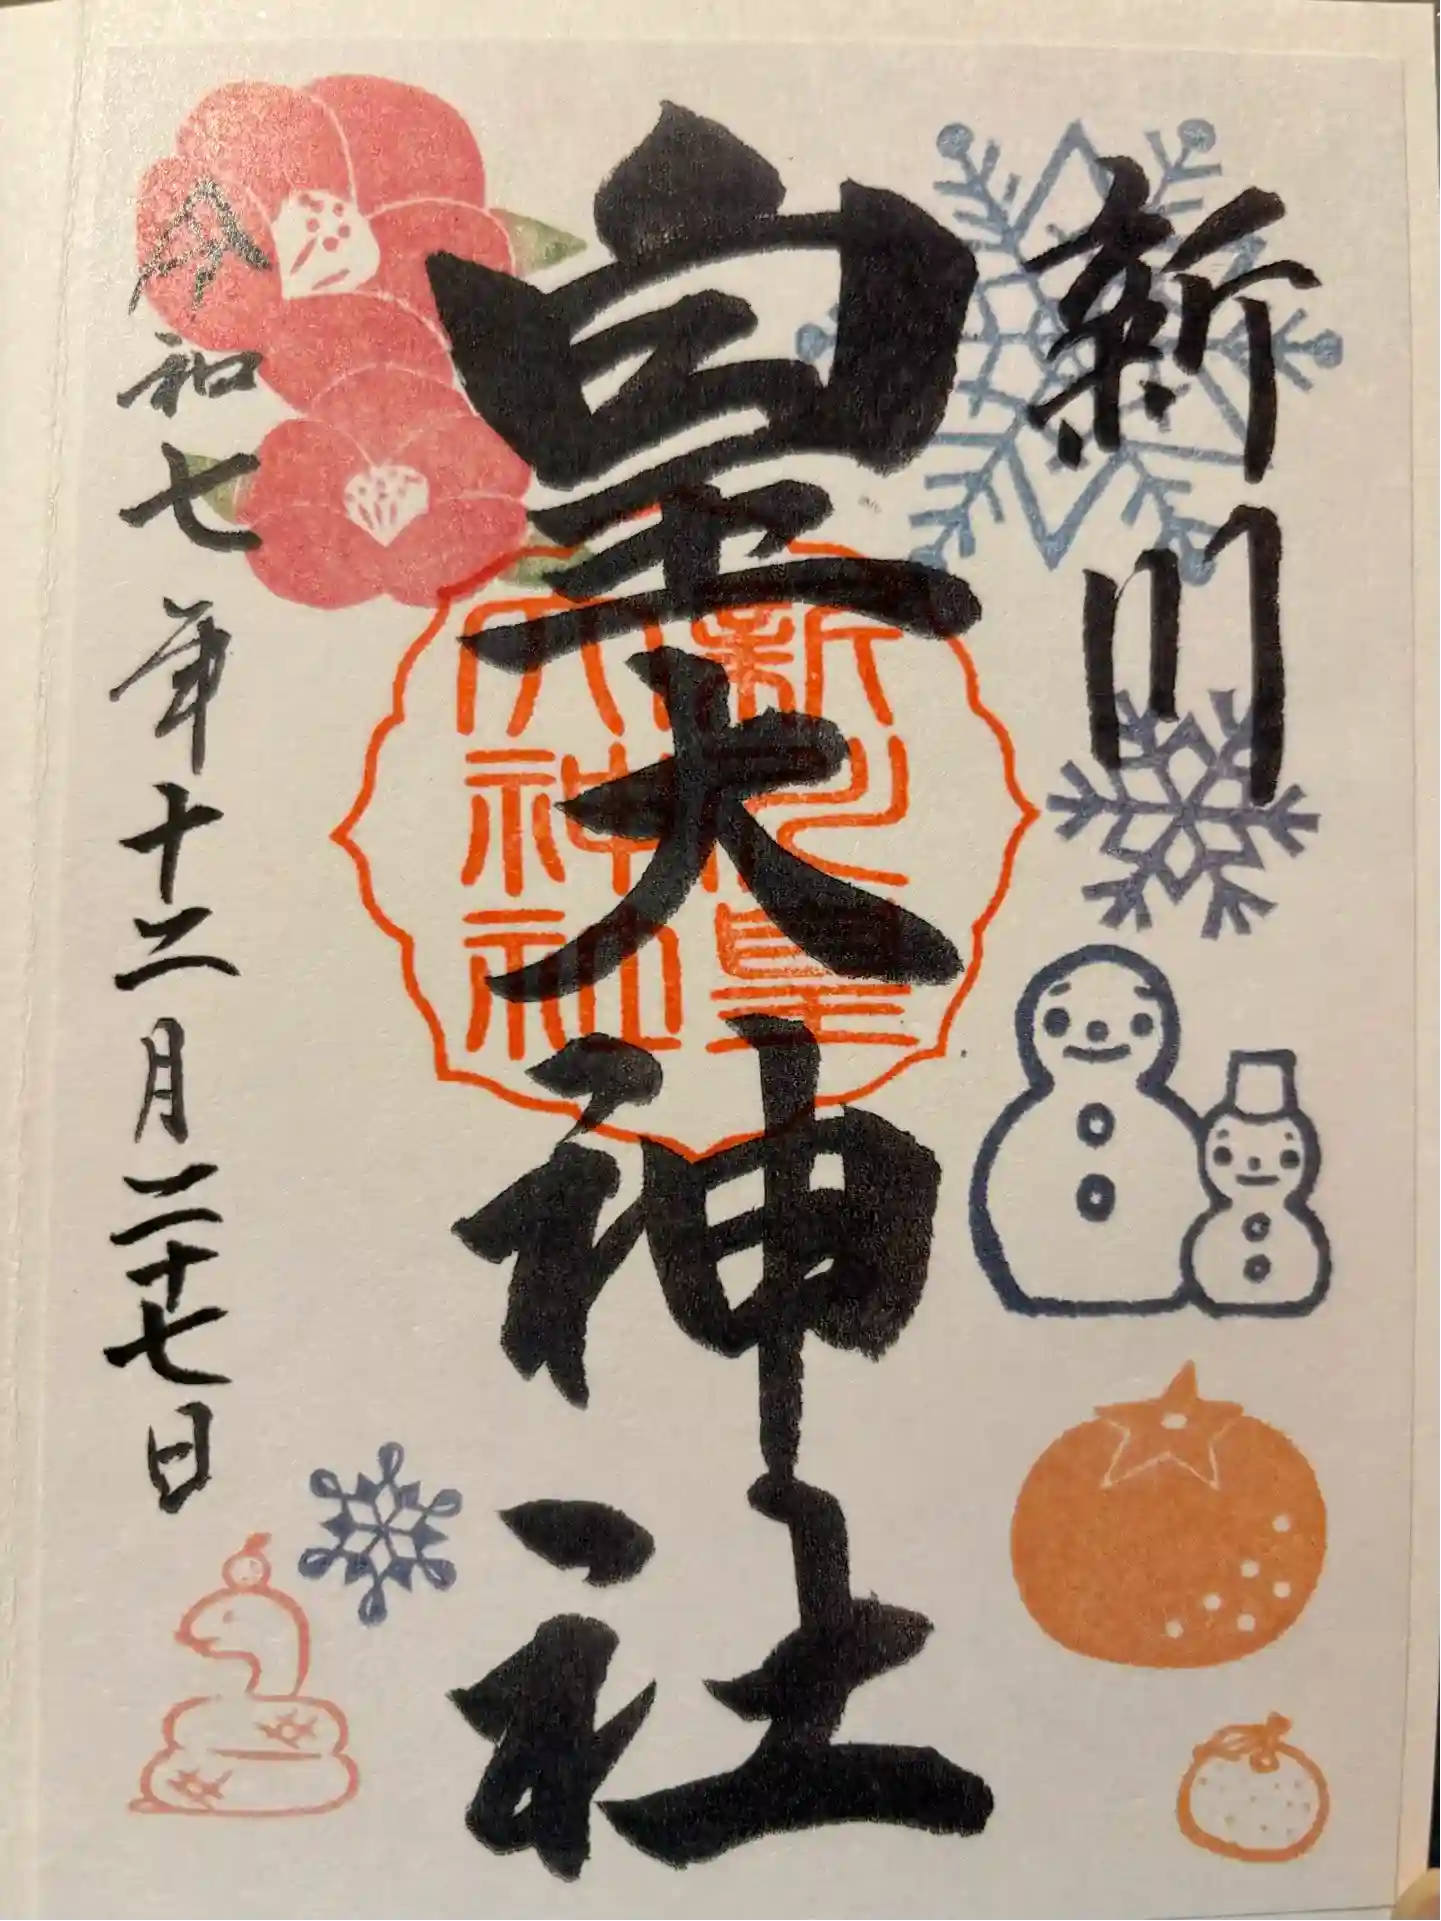 新川
皇大神社
令和七年十二月二十七日
新川皇
大神社